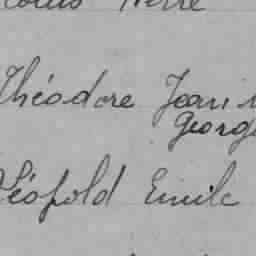 Théodore Jean
George
Léopold Emile